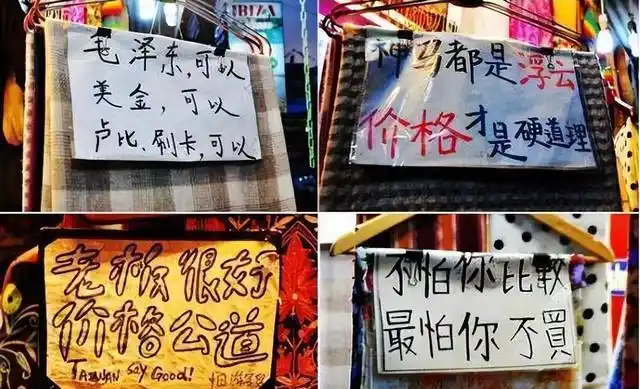 毛泽东,可以
美金,可以
卢比、刷卡,可以
神马都是浮云
价格才是硬道理
老板很好
价格公道
TAIWAN SAY GOOD!
不怕你比較
最怕你不買
IBIZA